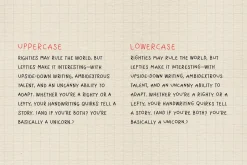 UPPERCASE
RIGHTIES MAY RULE THE WORLD, BUT
LEFTIES MAKE IT INTERESTING-WITH
UPSIDE-DOWN WRITING, AMBIDEXTROUS
TALENT, AND AN UNCANNY ABILITY TO
ADAPT. WHETHER YOU'RE A RIGHTY OR A
LEFTY, YOUR HANDWRITING QUIRKS TELL A
STORY. (AND IF YOU'RE BOTH? YOU'RE
BASICALLY A UNICORN.)
LOWERCASE
RIGHTIES MAY RULE THE WORLD, BUT
LEFTIES MAKE IT INTERESTING-WITH
UPSIDE-DOWN WRITING, AMBIDEXTROUS
TALENT, AND AN UNCANNY ABILITY TO
ADAPT. WHETHER YOU'RE A RIGHTY OR A
LEFTY, YOUR HANDWRITING QUIRKS TELL A
STORY. (AND IF YOU'RE BOTH? YOU'RE
BASICALLY A UNICORN.)